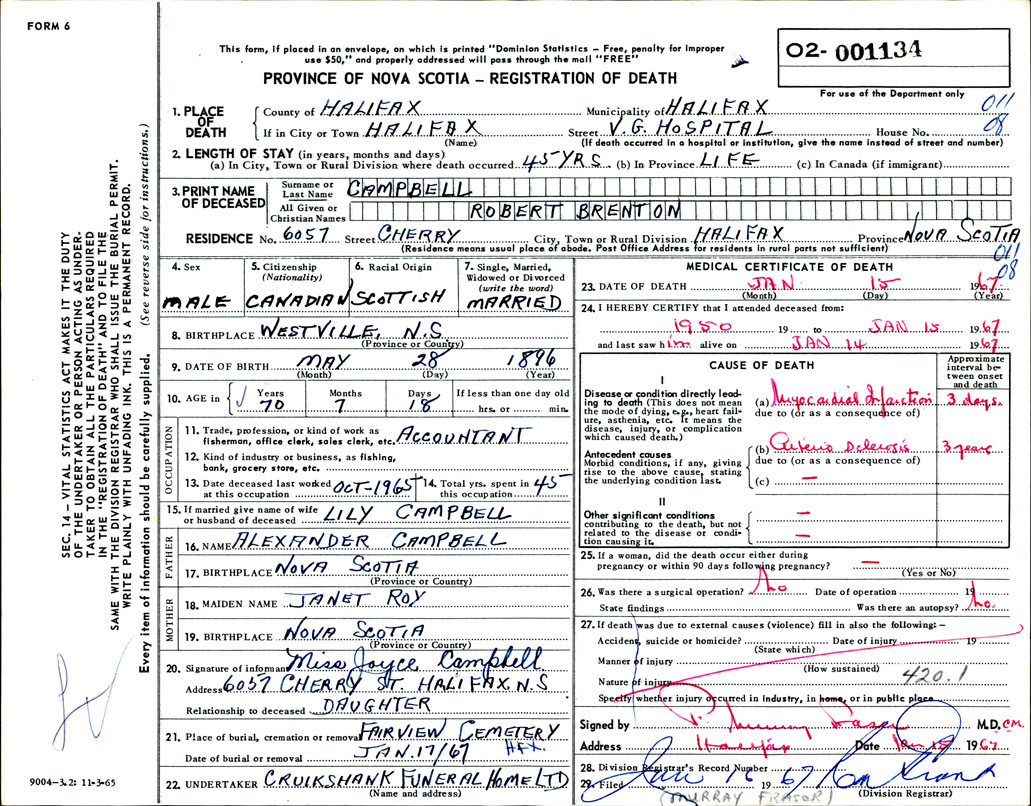 FORM 6
This form, if placed in an envelope, on which is printed "Dominion Statistics – Free, penalty for improper
use $50," and properly addressed will pass through the mail "FREE"
PROVINCE OF NOVA SCOTIA – REGISTRATION OF DEATH
02- 001134
For use of the Department only
SEC. 14 – VITAL STATISTICS ACT MAKES IT THE DUTY
OF THE UNDERTAKER OR PERSON ACTING AS UNDER-
TAKER TO OBTAIN ALL THE PARTICULARS REQUIRED
IN THE "REGISTRATION OF DEATH" AND TO FILE THE
SAME WITH THE DIVISION REGISTRAR WHO SHALL ISSUE THE BURIAL PERMIT.
WRITE PLAINLY WITH UNFADING INK. THIS IS A PERMANENT RECORD.
Every item of information should be carefully supplied. (See reverse side for instructions.)
9004-3.2: 11-3-65
1. PLACE OF DEATH
County of HALIFAX Municipality of HALIFAX 011
If in City or Town HALIFAX Street V.G. HOSPITAL House No. 08
(Name) (If death occurred in a hospital or institution, give the name instead of street and number)
2. LENGTH OF STAY (in years, months and days)
(a) In City, Town or Rural Division where death occurred 45 YRS (b) In Province LIFE (c) In Canada (if immigrant)
3. PRINT NAME OF DECEASED
Surname or Last Name CAMPBELL
All Given or Christian Names ROBERT BRENTON
RESIDENCE No. 6057 Street CHERRY City, Town or Rural Division HALIFAX Province NOVA SCOTIA
(Residence means usual place of abode. Post Office Address for residents in rural parts not sufficient) 011
08
4. Sex MALE
5. Citizenship (Nationality) CANADIAN
6. Racial Origin SCOTTISH
7. Single, Married, Widowed or Divorced (write the word) MARRIED
8. BIRTHPLACE WESTVILLE, N.S.
(Province or Country)
9. DATE OF BIRTH MAY 28 1896
(Month) (Day) (Year)
10. AGE in Years Months Days If less than one day old
70 7 18 hrs. or min.
OCCUPATION
11. Trade, profession, or kind of work as
fisherman, office clerk, sales clerk, etc. ACCOUNTANT
12. Kind of industry or business, as fishing,
bank, grocery store, etc.
13. Date deceased last worked at this occupation OCT-1965 14. Total yrs. spent in this occupation 45
15. If married give name of wife
or husband of deceased LILY CAMPBELL
FATHER
16. NAME ALEXANDER CAMPBELL
17. BIRTHPLACE NOVA SCOTIA
(Province or Country)
MOTHER
18. MAIDEN NAME JANET ROY
19. BIRTHPLACE NOVA SCOTIA
(Province or Country)
20. Signature of informant Miss Joyce Campbell
Address 6057 CHERRY ST. HALIFAX N.S
Relationship to deceased DAUGHTER
21. Place of burial, cremation or removal FAIRVIEW CEMETERY
Date of burial or removal JAN. 17/67 HFX.
22. UNDERTAKER CRUIKSHANK FUNERAL HOME LTD
(Name and address)
MEDICAL CERTIFICATE OF DEATH
23. DATE OF DEATH JAN 15 1967
(Month) (Day) (Year)
24. I HEREBY CERTIFY that I attended deceased from:
1950 19 to JAN 15 1967
and last saw him alive on JAN 14 1967
CAUSE OF DEATH
Approximate interval between onset and death
I
Disease or condition directly leading to death (This does not mean the mode of dying, e.g., heart failure, asthenia, etc. It means the disease, injury, or complication which caused death.)
(a) Myocardial Infarction 3 days.
due to (or as a consequence of)
Antecedent causes
Morbid conditions, if any, giving rise to the above cause, stating the underlying condition last.
(b) Arterio Sclerosis 3 years
due to (or as a consequence of)
(c) —
II
Other significant conditions
contributing to the death, but not related to the disease or condition causing it.
—
—
25. If a woman, did the death occur either during
pregnancy or within 90 days following pregnancy? —
(Yes or No)
26. Was there a surgical operation? No Date of operation 19
State findings Was there an autopsy? No.
27. If death was due to external causes (violence) fill in also the following: –
Accident, suicide or homicide? Date of injury 19
(State which)
Manner of injury
(How sustained)
Nature of injury 420.1
Specify whether injury occurred in industry, in home, or in public place
Signed by Murray Fraser M.D. C.M.
Address Halifax Date Jan 15 1967
28. Division Registrar's Record Number
29. Filed Jan 16 1967
(Division Registrar)
(MURRAY FRASER)